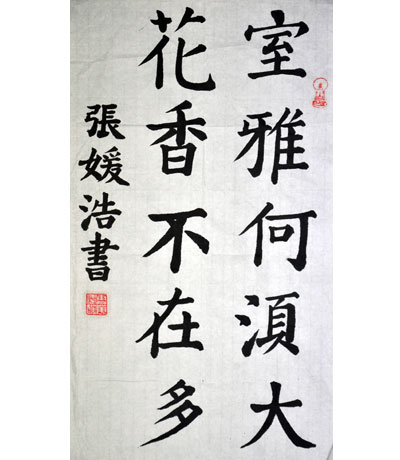 室雅何湏大
花香不在多
張媛浩書